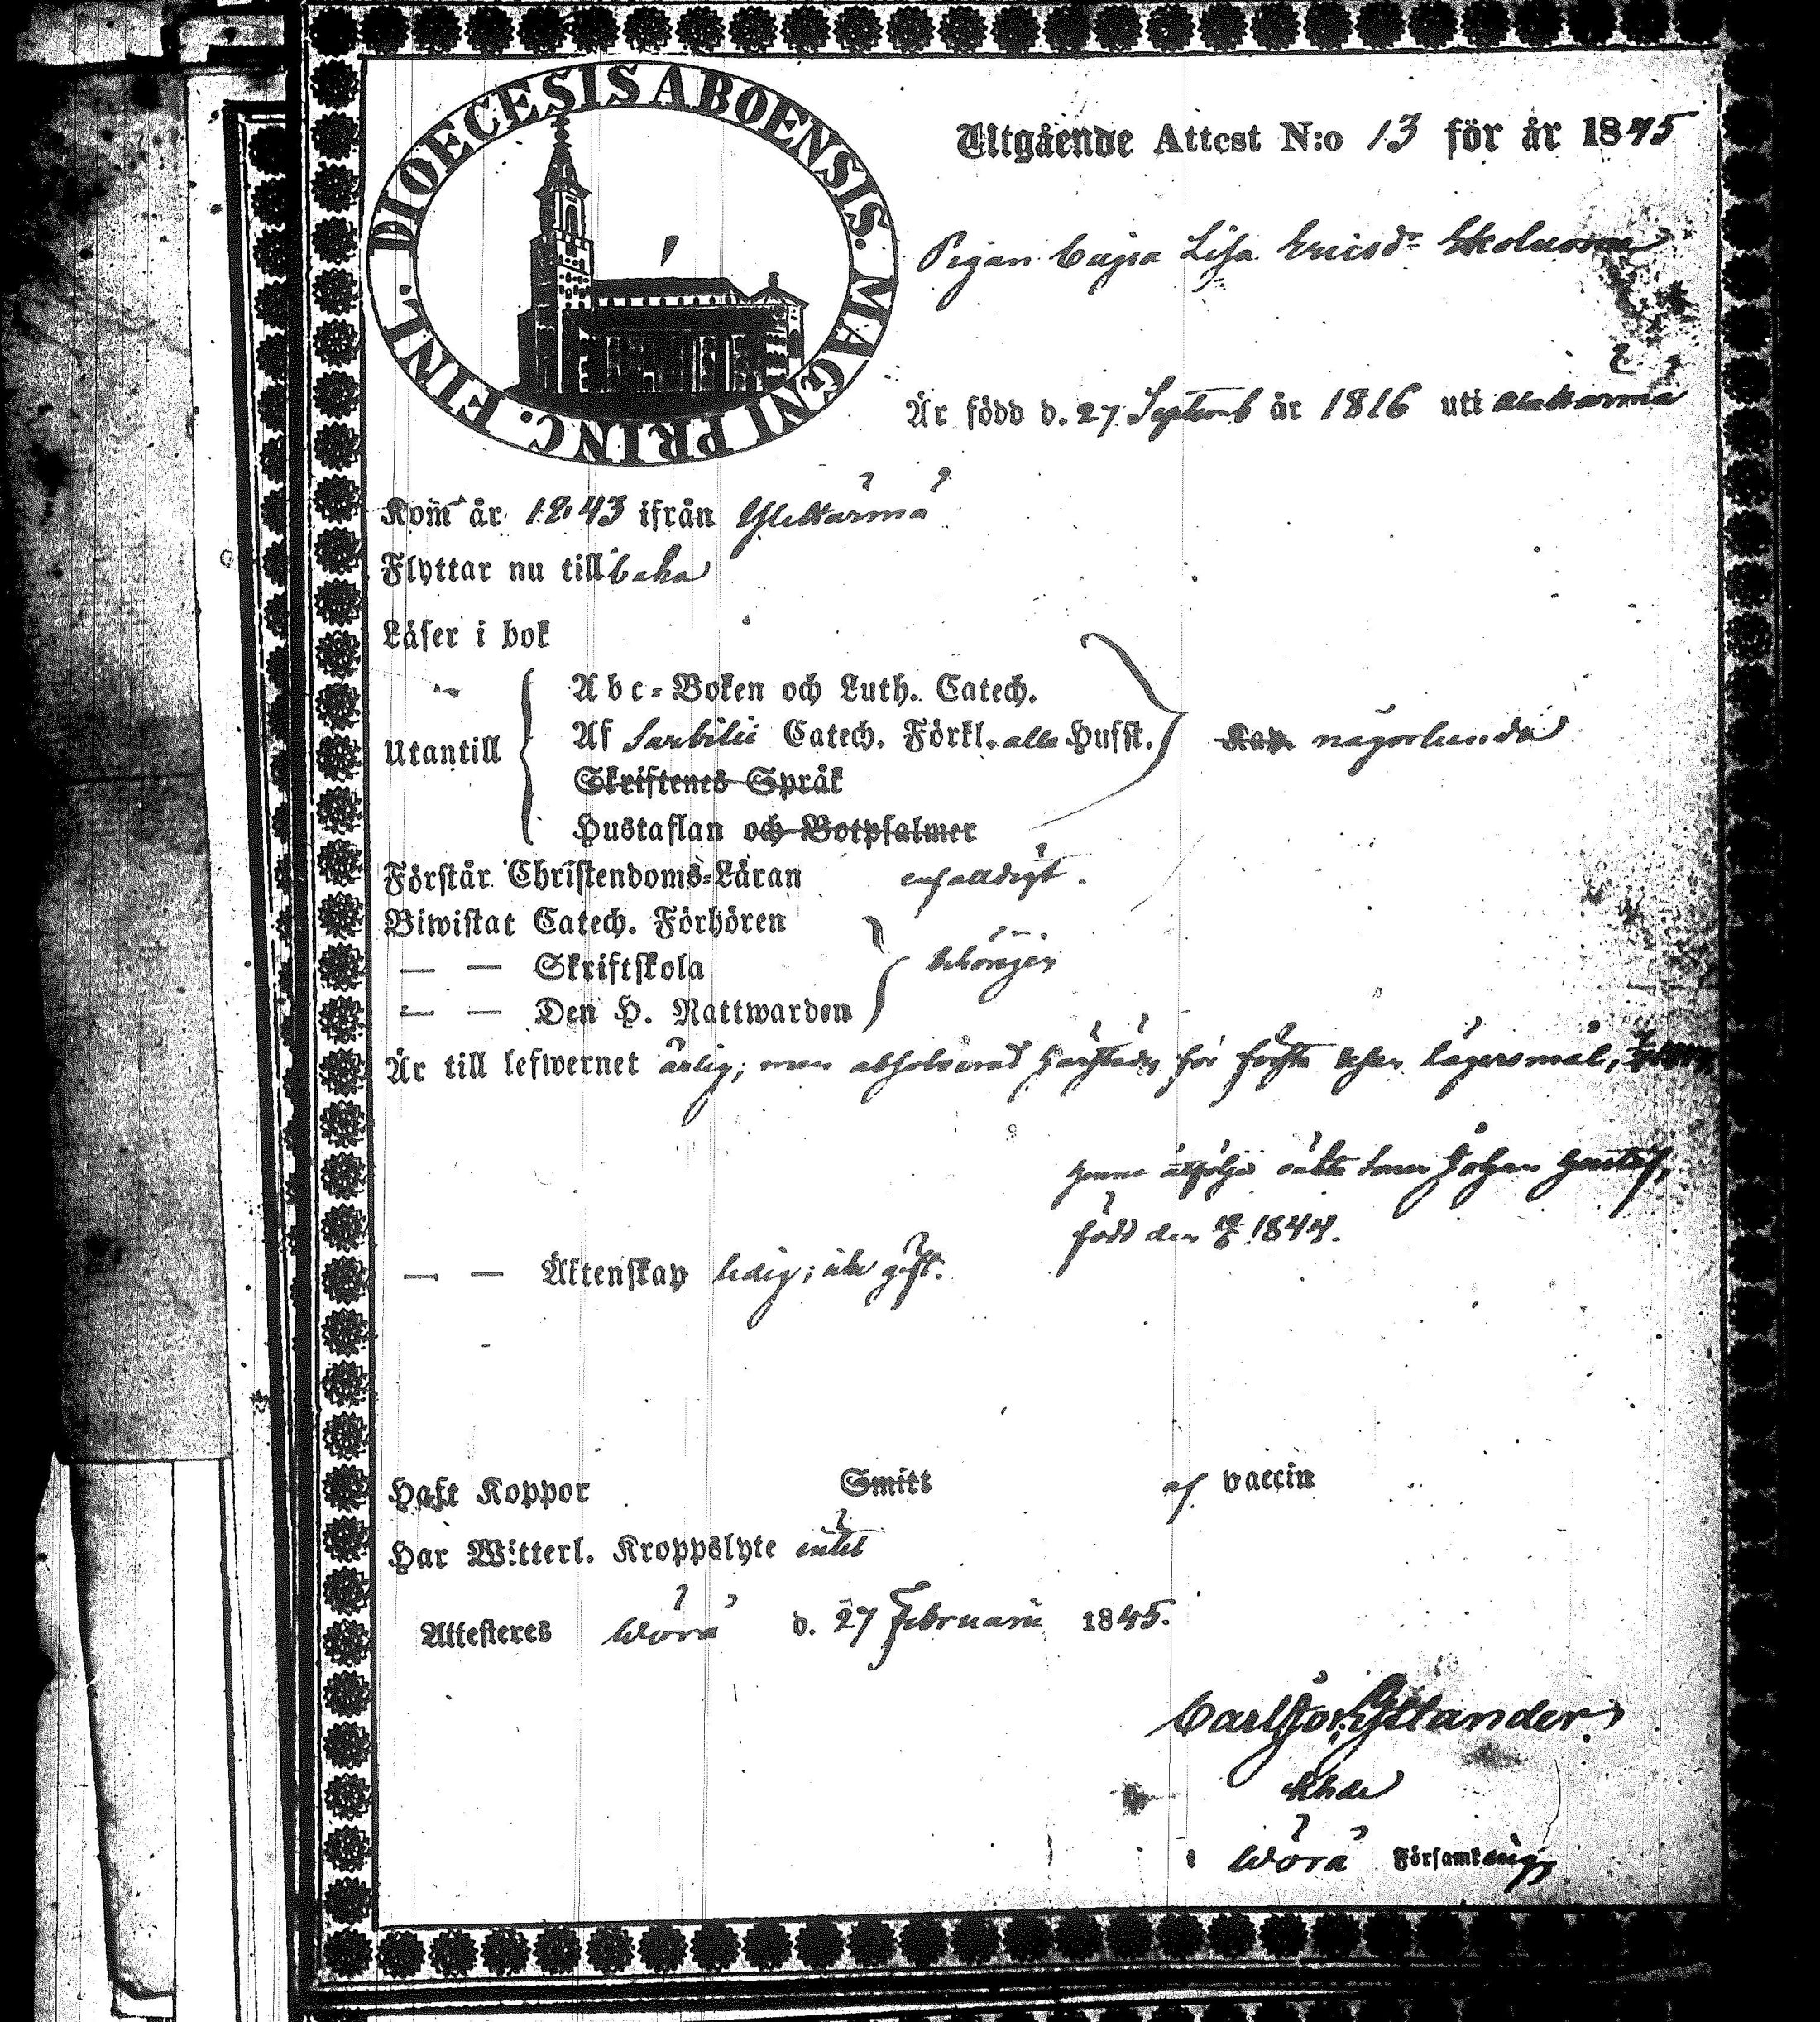 DIOECESIS ABOENSIS. MAGNI PRINC. FINL.
Utgående Attest N:o 13 för år 1845
Pigan Cajsa Lisa Ericsdr
Är född d. 27 Septemb år 1816 uti Alakärmä
Kom år 1843 ifrån Ylikärmä
Flyttar nu till baka
Läser i bok
Utantill
Abc-Boken och Luth. Catech.
Af Svebilii Catech. Förkl. alla Hufst.
någorlunda
Skriftenes Språk
Hustaflan och Botpsalmer
Förstår Christendoms-Läran enfalldigt.
Biwistat Catech. Förhören
— — Skriftskola behörigen
— — Den H. Nattwarden
Är till lefwernet ärlig; men absolverad för första resan lägersmål,
Henne åtföljer oäkta sonen Johan Gustaf,
född den 1844.
— — Äktenskap ledig; icke gift.
Haft Koppor Smitt af vaccin
Har Witterl. Kroppslyte intet
Attesteres Wörå d. 27 Februarii 1845.
Carl Joh. Gyllander
Khde
i Wörå Församling